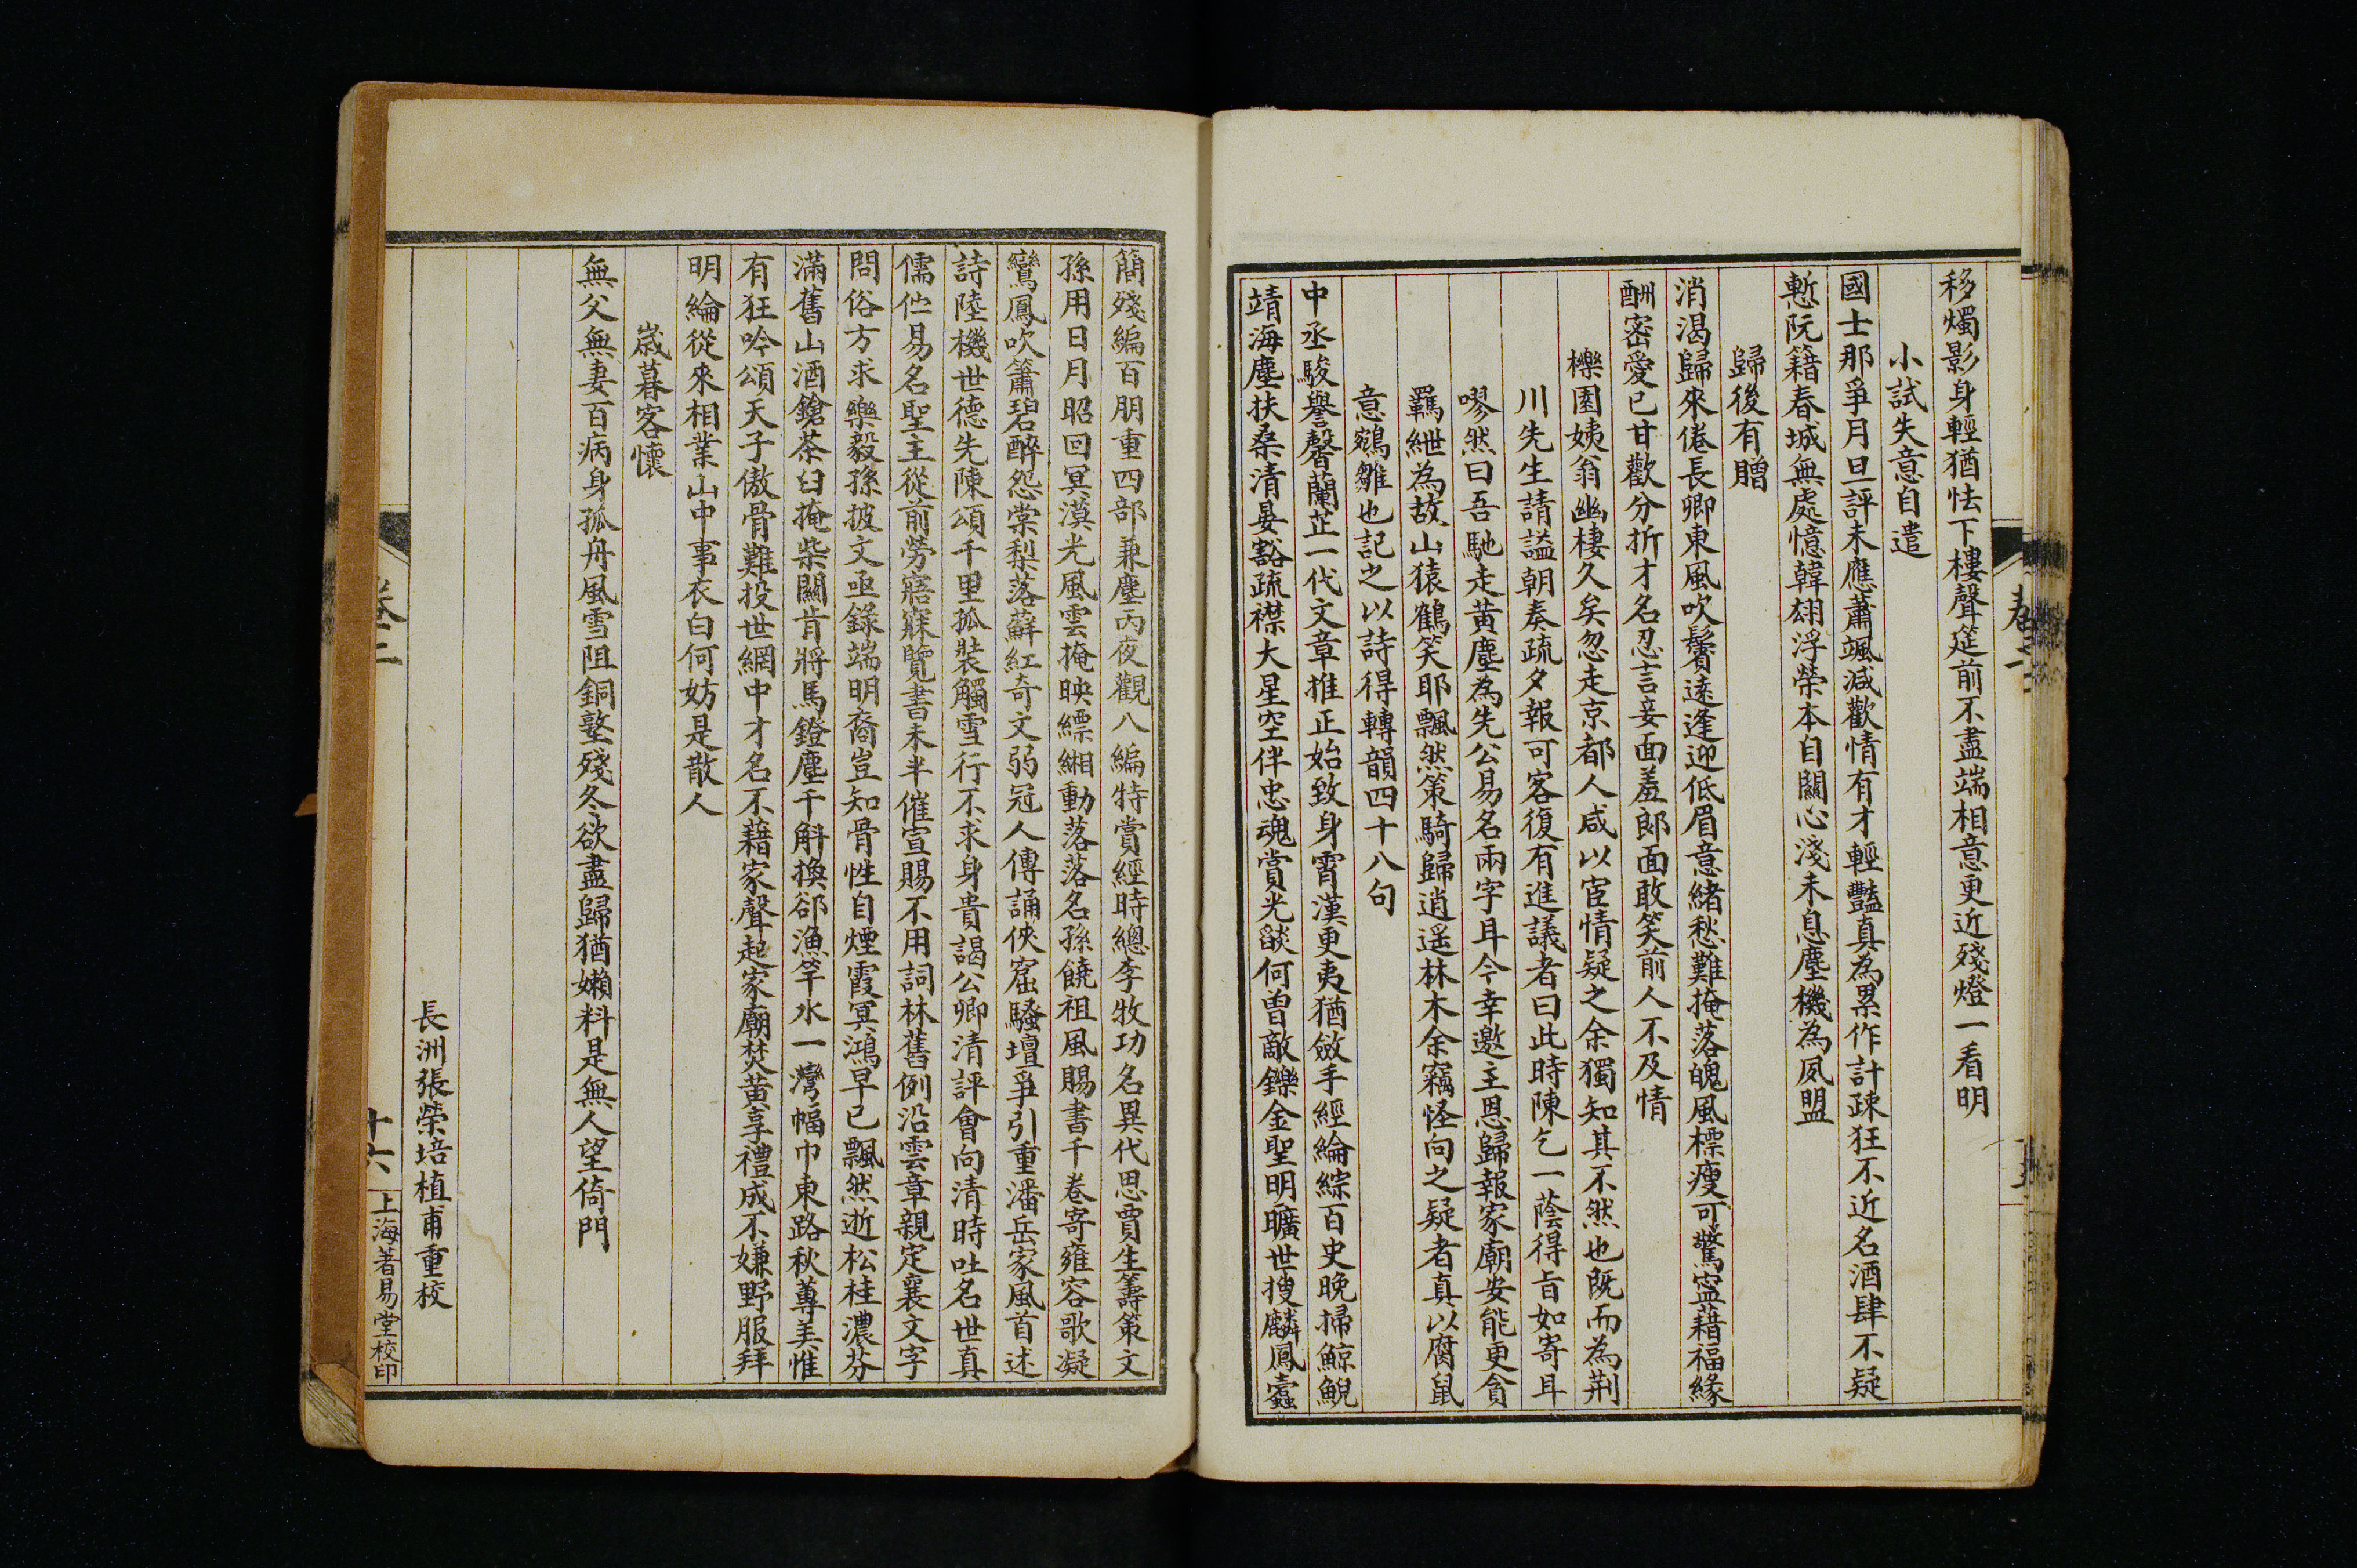 移燭影身輕猶怯下樓聲筵前不盡端相意更近殘燈一看明
小試失意自遣
國士那爭月旦評未應蕭颯減歡情有才輕豔真為累作計疎狂不近名酒肆不疑
慙阮籍春城無處憶韓翃浮榮本自關心淺未息塵機為夙盟
歸後有贈
消渴歸來倦長卿東風吹鬢遠逢迎低眉意緒愁難掩落魄風標瘦可驚寧藉福緣
酬密愛已甘歡分折才名忍言妾面羞郎面敢笑前人不及情
櫟園姨翁幽棲久矣忽走京都人咸以宦情疑之余獨知其不然也既而為荆
川先生請謚朝奏疏夕報可客復有進議者曰此時陳乞一蔭得旨如寄耳
嘐然曰吾馳走黃塵為先公易名兩字耳今幸邀主恩歸報家廟安能更貪
羈紲為故山猿鶴笑耶飄然策騎歸逍遥林木余竊怪向之疑者真以腐鼠
意鵷雛也記之以詩得轉韻四十八句
中丞駿譽馨蘭芷一代文章推正始致身霄漢更夷猶斂手經綸綜百史晚掃鯨鯢
靖海塵扶桑清晏豁疏襟大星空伴忠魂賞光燄何曾敵鑠金聖明曠世搜麟鳳蠹
簡殘編百朋重四部兼塵丙夜觀八編特賞經時總李牧功名異代思賈生籌策文
孫用日月昭回冥漠光風雲掩映縹緗動落落名孫饒祖風賜書千卷寄雍容歌凝
鸞鳳吹簫碧醉怨棠梨落蘚紅奇文弱冠人傳誦俠窟騷壇爭引重潘岳家風首述
詩陸機世德先陳頌千里孤裝觸雪行不求身貴謁公卿清評會向清時吐名世真
儒伫易名聖主從前勞寤寐覽書未半催宣賜不用詞林舊例沿雲章親定襄文字
問俗方求樂毅孫披文亟錄端明裔豈知骨性自煙霞冥鴻早已飄然逝松桂濃芬
滿舊山酒鎗茶臼掩柴關肯將馬鐙塵千斛換郤漁竿水一灣幅巾東路秋蓴美惟
有狂吟頌天子傲骨難投世網中才名不藉家聲起家廟焚黃享禮成不嫌野服拜
明綸從來相業山中事衣白何妨是散人
歲暮客懷
無父無妻百病身孤舟風雪阻銅墪殘冬欲盡歸猶嬾料是無人望倚門
長洲張榮培植甫重校
卷二
十六
上海著易堂校印